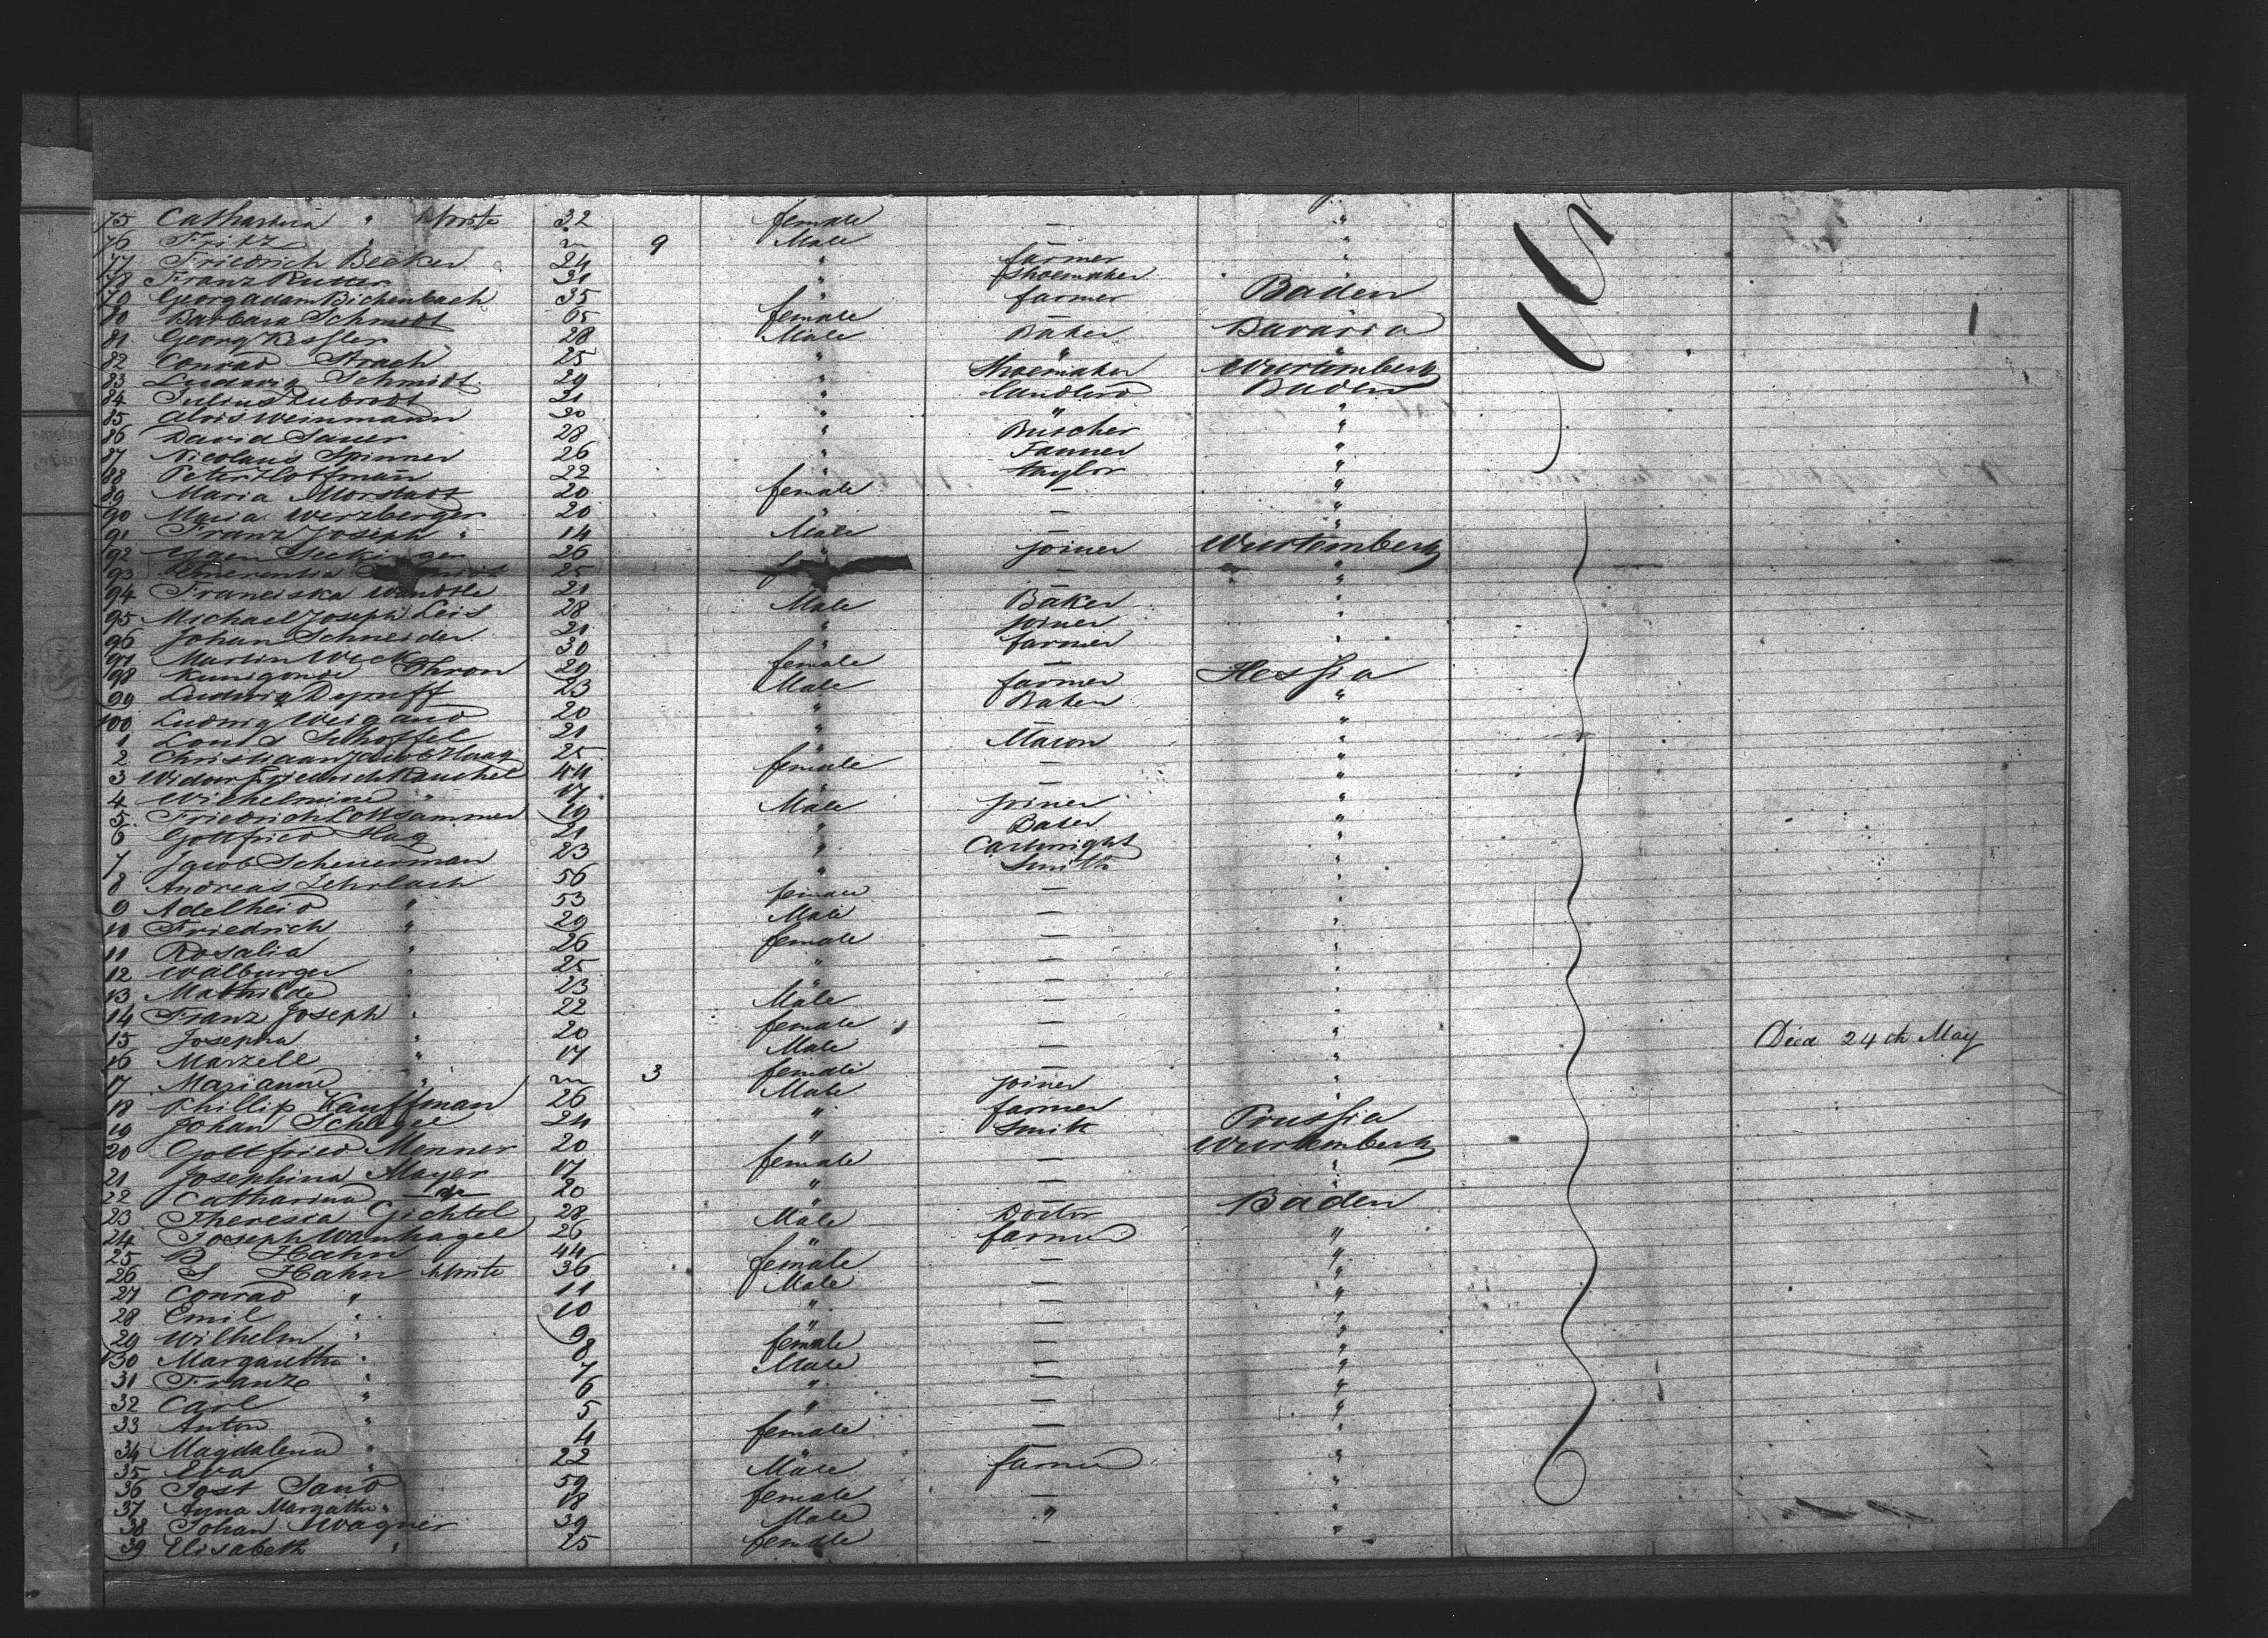 75 Catharina " Wife 32 female — "
76 Fritz " m 9 Male — "
77 Friedrich Beaker 24 " farmer "
78 Franz Rutter 31 " Shoemaker "
79 Georg Adam Bichenbach 35 " farmer Baden
80 Barbara Schmidt 65 female —
81 Georg Kessler 28 Male Baker Bavaria
82 Conrad Strach 25 " " "
83 Ludwig Schmidt 29 " Shoemaker Wurtemberg
84 Julius Lubrodt 21 " Landlord Baden
85 Alois Weinmann 20 " "
86 David Sauer 28 " Büscher "
87 Nicolaus Spinner 26 " Fanner "
88 Peter Hoffmann 22 " taylor "
89 Maria Morstadt 20 female — "
90 Maria Werzberger 20 " — "
91 Franz Joseph " 14 Male "
92 Seckinger 26 " joiner Wurtemberg
93 Emerentia 25 — "
94 Franciska Wandtle 21 "
95 Michael Joseph Leis 28 Male Baker "
96 Johan Schneider 21 " joiner "
97 Martin Weck 30 " farmer "
98 Kunigonde Thron 29 female —
99 Ludwig Depuff 23 Male farmer Hessia
100 Ludwig Weigand 20 " Baker "
1 Louis Schoffel 21 " — "
2 Christiaan Jacob Haag 25 " Mason "
3 Widow Friedrich Rauchel 44 female — "
4 Wilhelmine " 17 " — "
5 Friedrich Lottsammer 19 Male joiner "
6 Gottfried Hag 21 " Baker "
7 Jacob Scheuerman 23 " Cartwright "
8 Andreas Zehrlach 56 " Smith "
9 Adelheid " 53 female — "
10 Friedrich " 29 Male — "
11 Rosalia " 26 female — "
12 Walburger " 25 " — "
13 Mathilde " 23 — "
14 Franz Joseph " 22 Male — "
15 Josepha " 20 female — " Died 24th May
16 Marzell " 17 Male — "
17 Marianne " m 3 female — "
18 Phillip Kauffman 26 Male joiner "
19 Johan Schagee 24 farmer Prussia
20 Gottfried Menner 20 " Smith Wurtemberg
21 Josephina Mayer 17 female — "
22 Catharina do 20 " — "
23 Theresia Gichtel 28 " — Baden
24 Joseph Wanhagel 26 Male Doctor
25 B Hahn 44 farmer "
26 S Hahn Wife 36 female — "
27 Conrad " 11 Male — "
28 Emil " 10 " — "
29 Wilhelm " 9 " — "
130 Margaretha " 8 female — "
31 Franze " 7 Male — "
32 Carl " 6 " — "
33 Anton " 5 " — "
34 Magdalena " 4 female — "
35 Eva " 22 " "
36 Jost Sand 59 Male farmer "
37 Anna Margatha " 18 female — "
38 Johan Wagner 39 Male " "
39 Elisabeth " 25 female — "